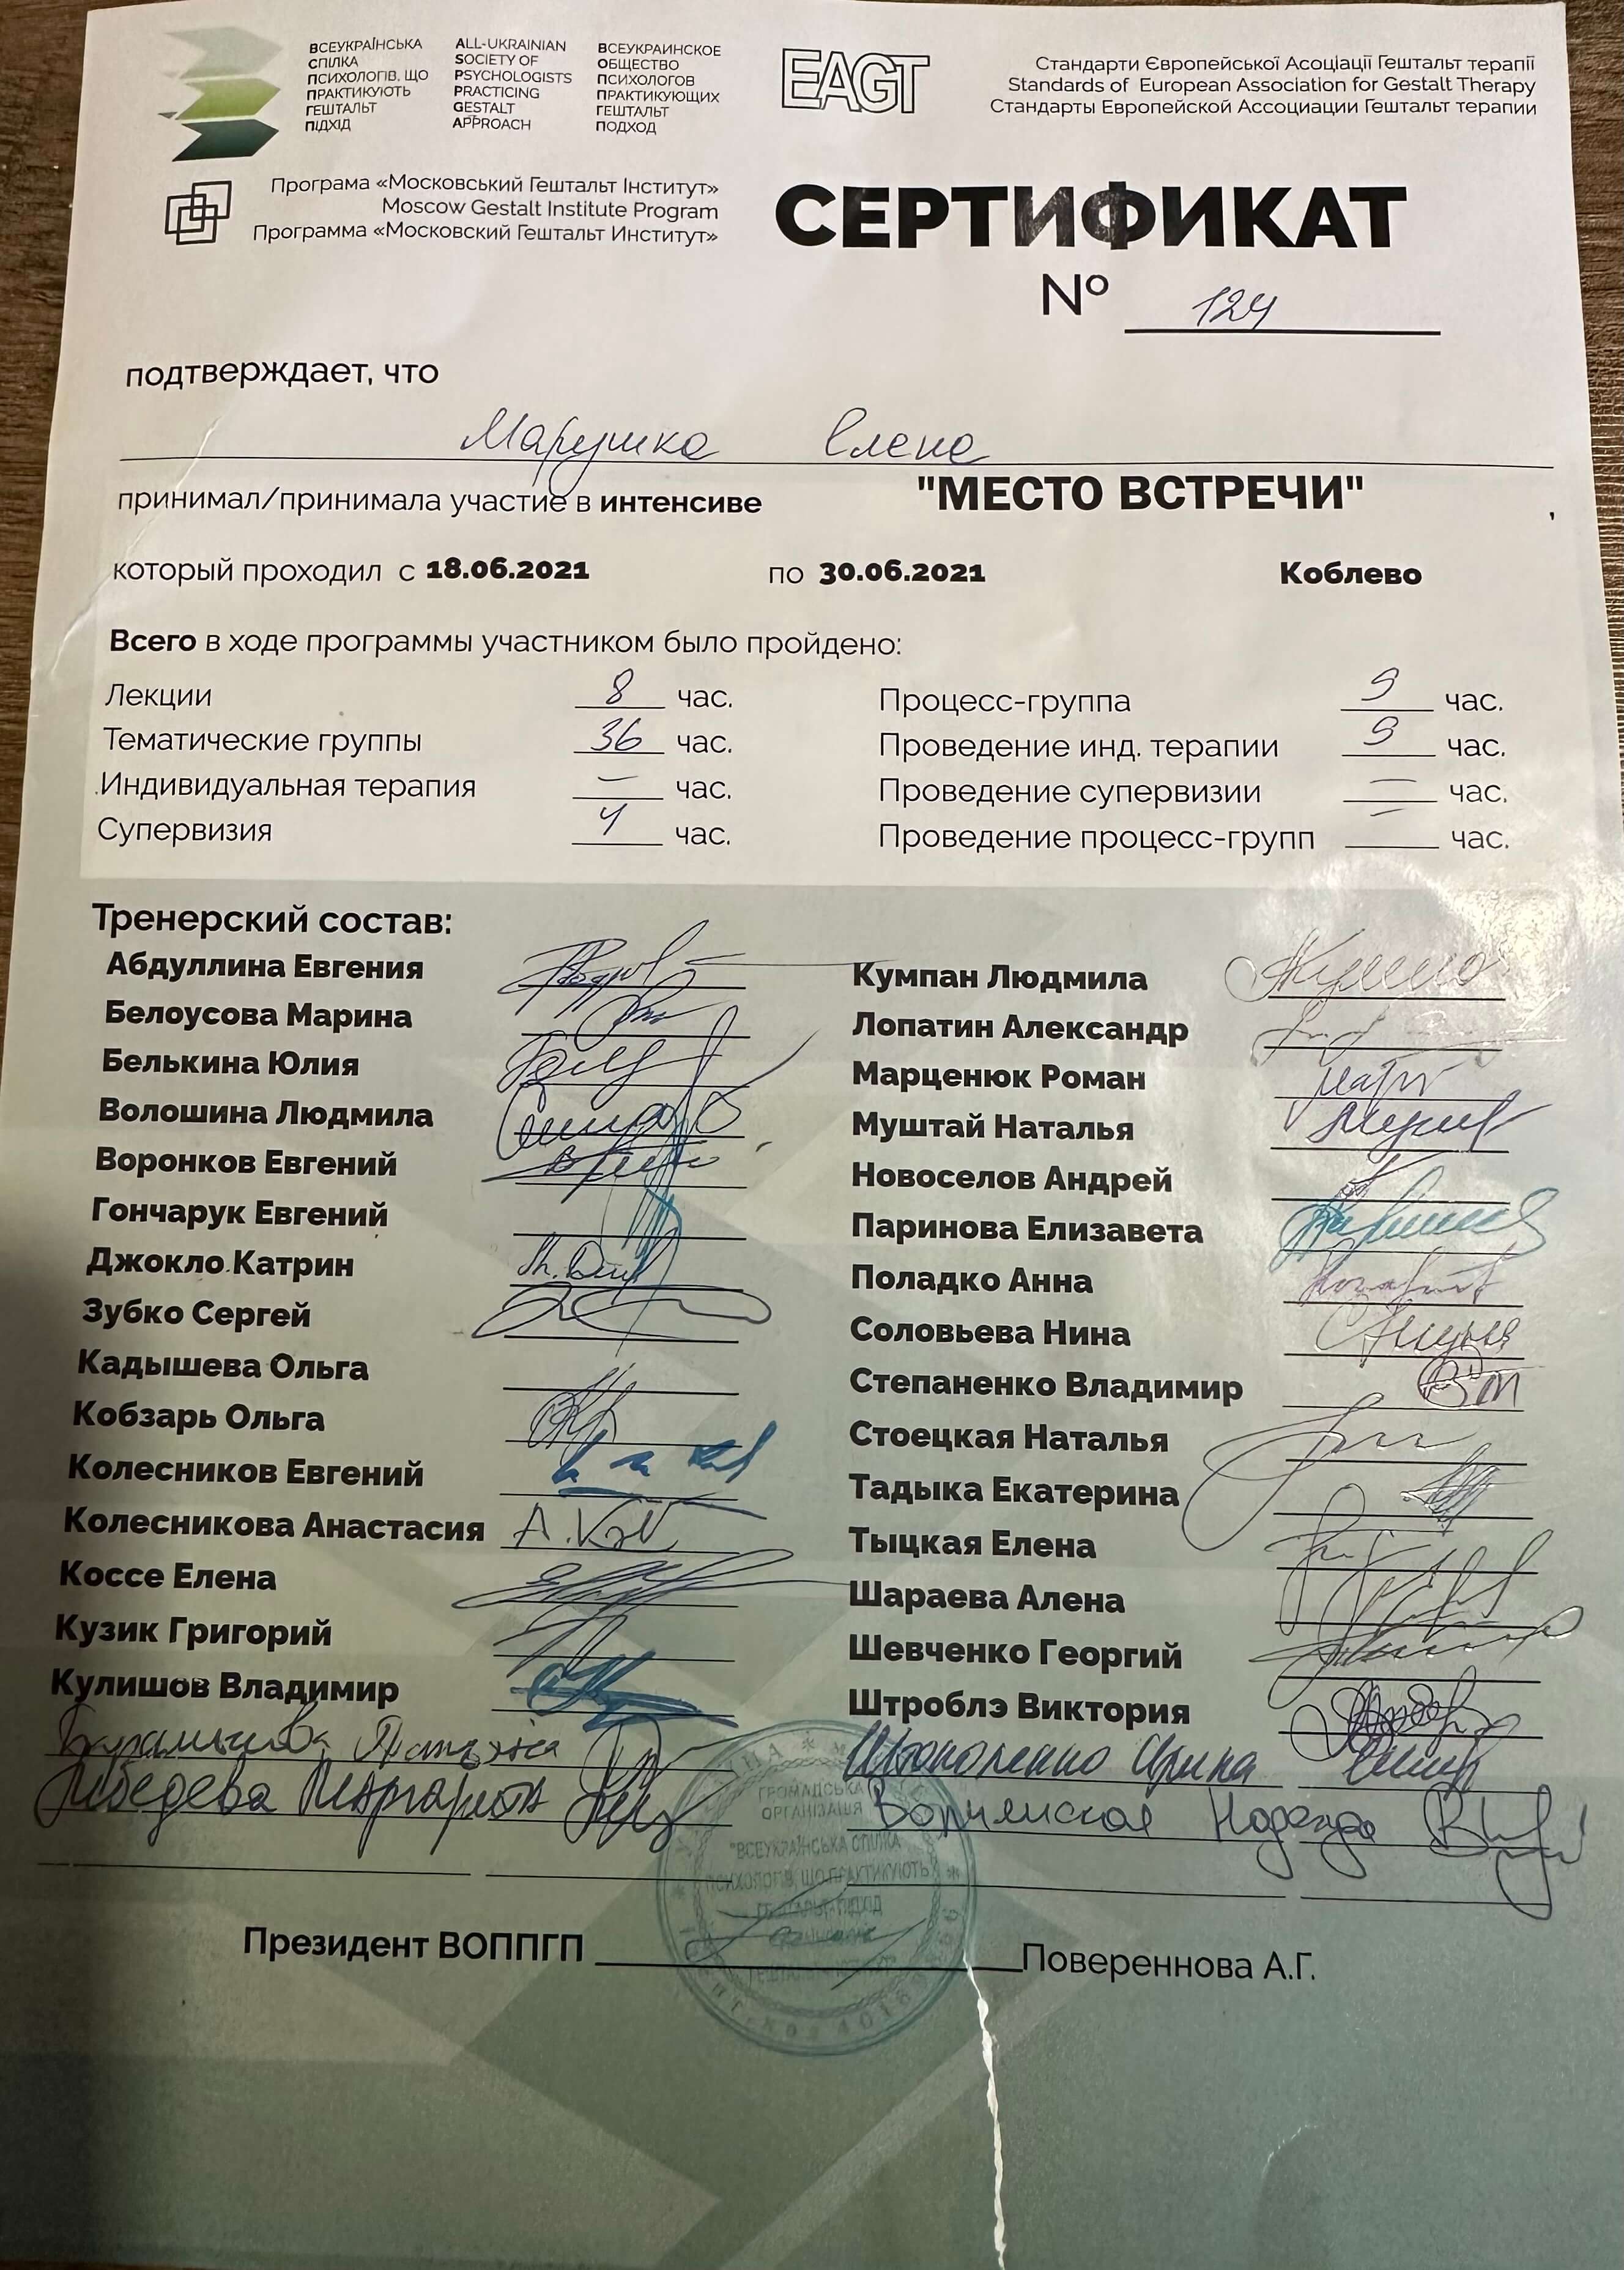 ВСЕУКРАЇНСЬКА
СПІЛКА
ПСИХОЛОГІВ, ЩО
ПРАКТИКУЮТЬ
ГЕШТАЛЬТ
ПІДХІД
ALL-UKRAINIAN
SOCIETY OF
PSYCHOLOGISTS
PRACTICING
GESTALT
APPROACH
ВСЕУКРАИНСКОЕ
ОБЩЕСТВО
ПСИХОЛОГОВ
ПРАКТИКУЮЩИХ
ГЕШТАЛЬТ
ПОДХОД
EAGT
Стандарти Європейської Асоціації Гештальт терапії
Standards of European Association for Gestalt Therapy
Стандарты Европейской Ассоциации Гештальт терапии
Програма «Московський Гештальт Інститут»
Moscow Gestalt Institute Program
Программа «Московский Гештальт Институт»
СЕРТИФИКАТ
№ 124
подтверждает, что
Марушка Елена
принимал/принимала участие в интенсиве "МЕСТО ВСТРЕЧИ"
который проходил с 18.06.2021 по 30.06.2021 Коблево
Всего в ходе программы участником было пройдено:
Лекции 8 час. Процесс-группа 9 час.
Тематические группы 36 час. Проведение инд. терапии 9 час.
Индивидуальная терапия — час. Проведение супервизии — час.
Супервизия 4 час. Проведение процесс-групп — час.
Тренерский состав:
Абдуллина Евгения
Белоусова Марина
Белькина Юлия
Волошина Людмила
Воронков Евгений
Гончарук Евгений
Джокло Катрин
Зубко Сергей
Кадышева Ольга
Кобзарь Ольга
Колесников Евгений
Колесникова Анастасия
Коссе Елена
Кузик Григорий
Кулишов Владимир
Лебедева Маргарита
Кумпан Людмила
Лопатин Александр
Марценюк Роман
Муштай Наталья
Новоселов Андрей
Паринова Елизавета
Поладко Анна
Соловьева Нина
Степаненко Владимир
Стоецкая Наталья
Тадыка Екатерина
Тыцкая Елена
Шараева Алена
Шевченко Георгий
Штроблэ Виктория
Ирина
Надежда
ГРОМАДСЬКА
ОРГАНІЗАЦІЯ
"ВСЕУКРАЇНСЬКА СПІЛКА
ПСИХОЛОГІВ, ЩО ПРАКТИКУЮТЬ
ГЕШТАЛЬТ ПІДХІД
Президент ВОППГП Повереннова А.Г.